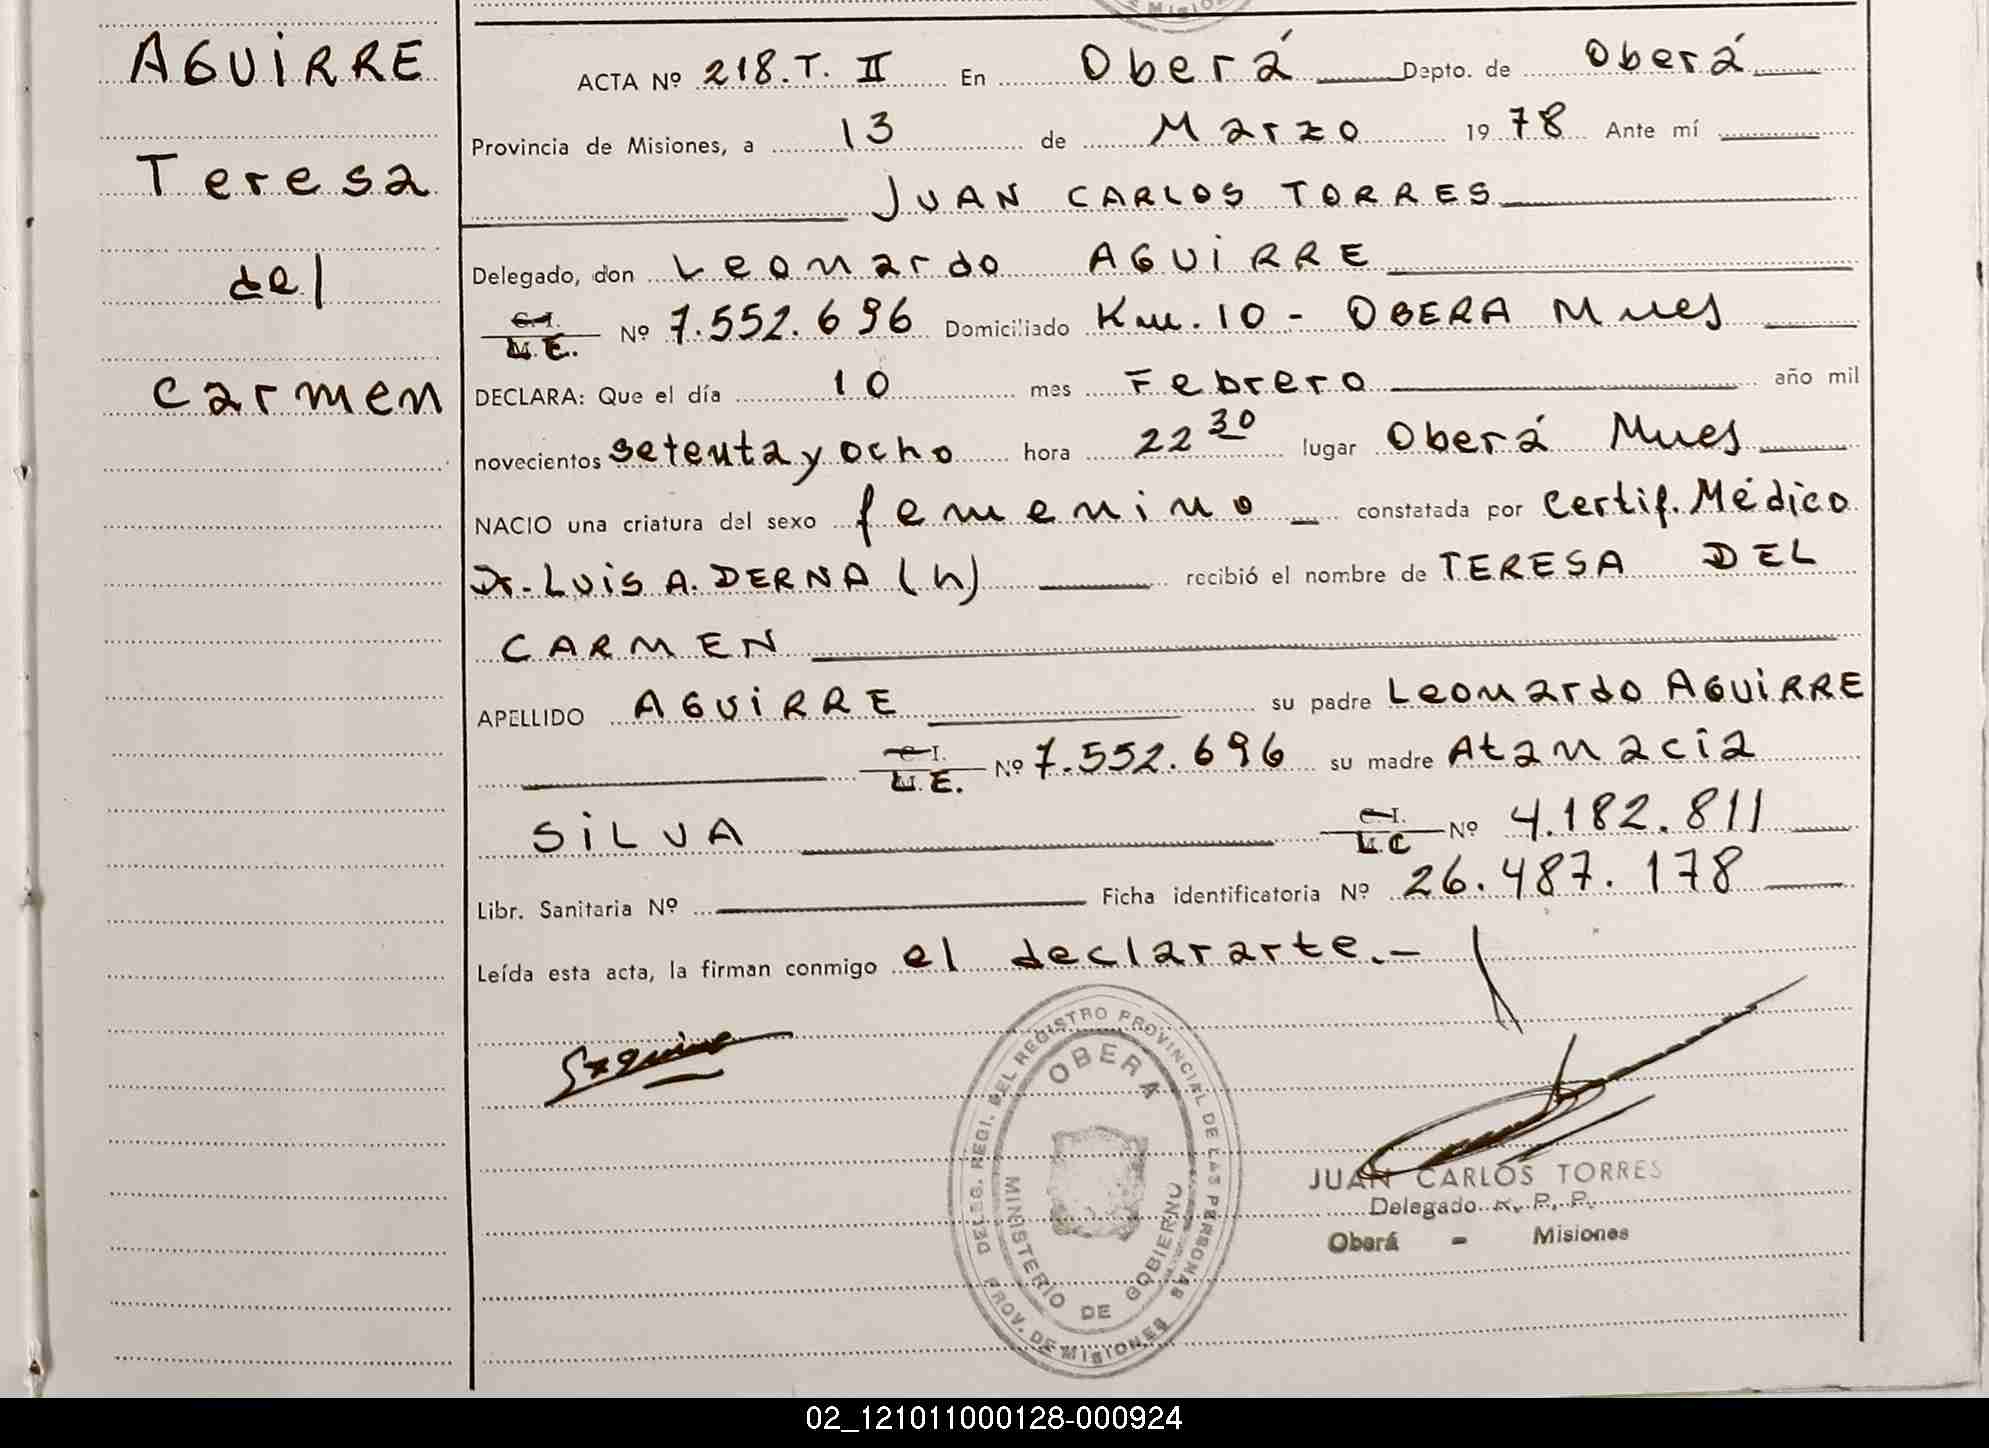 AGUIRRE
Teresa
del
Carmen
ACTA Nº 218.T. II En Oberá Depto. de Oberá
Provincia de Misiones, a 13 de Marzo 1978 Ante mí
JUAN CARLOS TORRES
Delegado, don Leonardo AGUIRRE
C.I. Nº 7.552.696 Domiciliado Km. 10 - OBERA Mnes
M.E.
DECLARA: Que el día 10 mes Febrero año mil
novecientos setenta y ocho hora 22 30 lugar Oberá Mnes
NACIO una criatura del sexo femenino constatada por Certif. Médico
Dr. LUIS A. DERNA (h) recibió el nombre de TERESA DEL
CARMEN
APELLIDO AGUIRRE su padre Leonardo AGUIRRE
C.I. Nº 7.552.696 su madre Atanacia
M.E.
SILVA C.I. Nº 4.182.811
L.C
Libr. Sanitaria Nº Ficha identificatoria Nº 26.487.178
Leída esta acta, la firman conmigo el declararte.-
DELEG. REGI. DEL REGISTRO PROVINCIAL DE LAS PERSONAS
OBERA
MINISTERIO DE GOBIERNO
PROV. DE MISIONES
JUAN CARLOS TORRES
Delegado R. P. P.
Oberá - Misiones
02_121011000128-000924